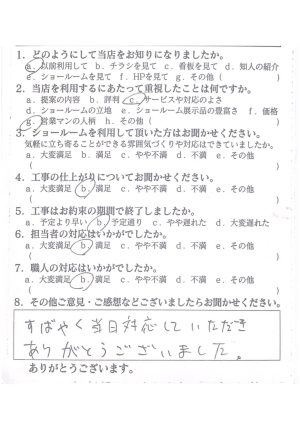 1. どのようにして当店をお知りになりましたか。
a. 以前利用して b. チラシを見て c. 看板を見て d. 知人の紹介
e. ショールームを見て f. HPを見て g. その他(
2. 当店を利用するにあたって重視したことは何ですか。
a. 提案の内容 b. 評判 c. サービスや対応のよさ
d. ショールームの立地 e. ショールーム展示品の豊富さ f. 価格
g. 営業マンの人柄 h. その他(
3. ショールームを利用して頂いた方はお聞かせください。
気軽に立ち寄ることができる雰囲気づくりや対応はできていましたか。
a. 大変満足 b. 満足 c. やや不満 d. 不満 e. その他
(
4. 工事の仕上がりについてお聞かせください。
a. 大変満足 b. 満足 c. やや不満 d. 不満 e. その他
(
5. 工事はお約束の期間で終了しましたか。
a. 予定より早い b. 予定通り c. やや遅れた d. 大変遅れた
6. 担当者の対応はいかがでしたか。
a. 大変満足 b. 満足 c. やや不満 d. 不満 e. その他
(
7. 職人の対応はいかがでしたか。
a. 大変満足 b. 満足 c. やや不満 d. 不満 e. その他
(
8. その他ご意見・ご感想などございましたらお聞かせください。
すばやく当日対応していただき
ありがとうございました。
ありがとうございます。